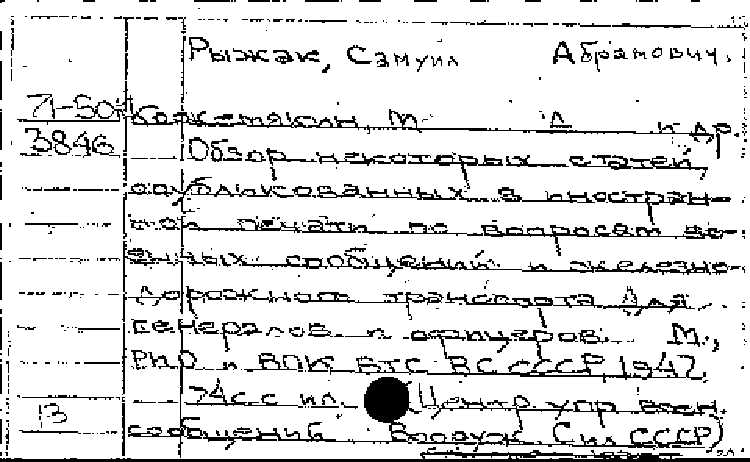 Рыжак, Самуил Абрамович.
71-50
3846
Кожемякин, М. А. и др.
Обзор некоторых статей,
опубликованных в иностран-
ной печати по вопросам во-
енных сообщений и железно-
дорожного транспорта Для
генералов и офицеров. М.,
ВТС ВС СССР, 1947.
74 с. с ил. (Центр. упр. воен.
13
сообщений Вооруж. Сил СССР)